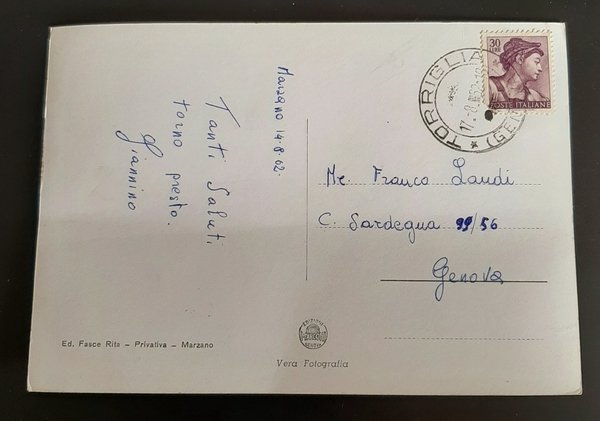 Marzano 14.8.62.
Tanti Saluti
torno presto.
Giannino
30
LIRE
POSTE ITALIANE
TORRIGLIA
17-8
(GEN
Mr. Franco Landi
C. Sardegna 99/56
Genova
Ed. Fasce Rita - Privativa - Marzano
EDIZIONI
GENOVA
Vera Fotografia